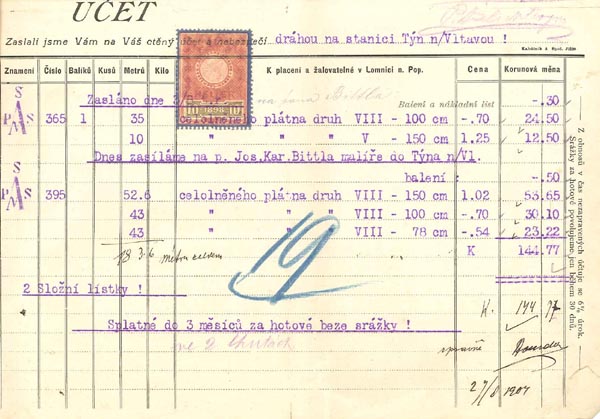 ÚČET
Zaslali jsme Vám na Váš ctěný účet a nebezpečí dráhou na stanici Týn n/Vltavou !
Znamení Číslo Balíků Kusů Metrů Kilo K placení a žalovatelné v Lomnici n. Pop. Cena Korunová měna
Zasláno dne Bittla Balení a nákladní list -.30
S P M S 365 1 35 celolněného plátna druh VIII - 100 cm -.70 24.50
10 " " V - 150 cm 1.25 12.50
Dnes zasíláme na p. Jos.Kar.Bittla malíře do Týna n/Vl.
balení : -.50
S P M S 395 52.6 celolněného plátna druh VIII - 150 cm 1.02 53.65
43 " " " VIII - 100 cm -.70 30.10
43 " " " VIII - 78 cm -.54 23.22
183.6 K 144.77
19
2 Složní lístky !
K. 144 77
Splatné do 3 měsíců za hotové beze srážky !
ve 2 lhůtách
správně
27/8 1907
1898
Z obnosů v čas nezapravených účtuje se 6% úrok.
Srážky za hotové povolujeme jen během 30 dnů.